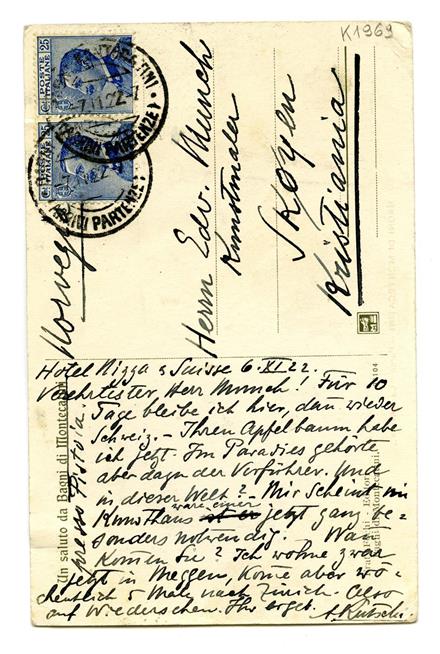 K1969
POSTE ITALIANE
C. 25
POSTE ITALIANE
C. 25
MONTECATINI
7.11.22
(ARRIVI PARTENZE)
(ARRIVI PARTENZE)
Herrn Edv. Munch
Kunstmaler
Skøyen
Kristiania
Norvegia
Un saluto da Bagni di Montecatini
presso Pistoia.
104
Hotel Nizza & Suisse 6. XI 22.
Verehrtester Herr Munch! Für 10
Tage bleibe ich hier, dan wieder
Schweiz. – Ihren Apfelbaum habe
ich jetzt. Im Paradies gehörte
aber dazu der Verführer. Und
in dieser Welt? – Mir scheint im
wäre einer
Kunsthaus jetzt ganz be=
sonders notwendig. Wan
komen Sie? Ich wohne zwar
jetzt in Meggen, kome aber wö=
chentlich 5 Mal nach Zürich. Also
auf Wiedersehen. Ihr ergeb.